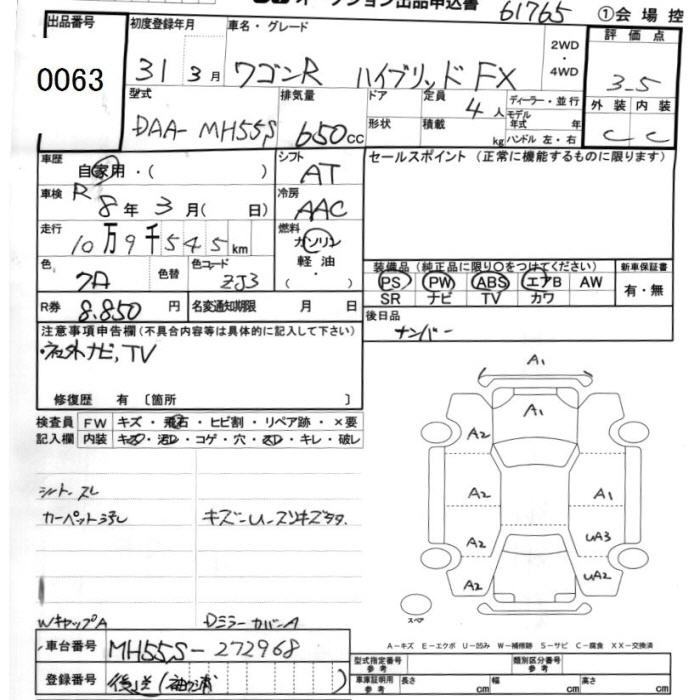 オークション出品申込書 61765 ①会場控
出品番号 初度登録年月 車名・グレード 2WD・4WD 評価点
0063 31 3月 ワゴンR ハイブリッド FX 3.5
型式 排気量 ドア 定員 4人 ディーラー・並行 外装 内装
DAA-MH55S 650cc 形状 積載 kg モデル年式 年 ハンドル 左・右 C C
車歴 自家用・( ) シフト AT セールスポイント(正常に機能するものに限ります)
車検 R 8年 3月( 日) 冷房 AAC
走行 10万9千545km 燃料 ガソリン 軽油 ( )
装備品(純正品に限り○をつけてください) 新車保証書
色 色替 色コード ZJ3 PS PW ABS エアB AW 有・無
SR ナビ TV カワ
R券 8.850円 名変通知期限 月 日 後日品
ナンバー
注意事項申告欄(不具合内容等は具体的に記入して下さい)
・社外ナビ,TV
修復歴 有〔箇所 〕
検査員 FW キズ・飛石・ヒビ割・リペア跡・×要
記入欄 内装 キズ・汚れ・コゲ・穴・スレ・キレ・破レ
A1
A1
A2
A2 A1
A2 UA3
A2 UA2
シート.スレ
カーペットヨゴレ
WキャップA DミラーカバーA
スペア
A-キズ E-エクボ U-凹み W-補修跡 S-サビ C-腐食 XX-交換済
車台番号 MH55S-272968
型式指定番号 参考 類別区分番号 参考
登録番号 後送(袖ヶ浦)
車庫証明用 参考 長さ cm 幅 cm 高さ cm